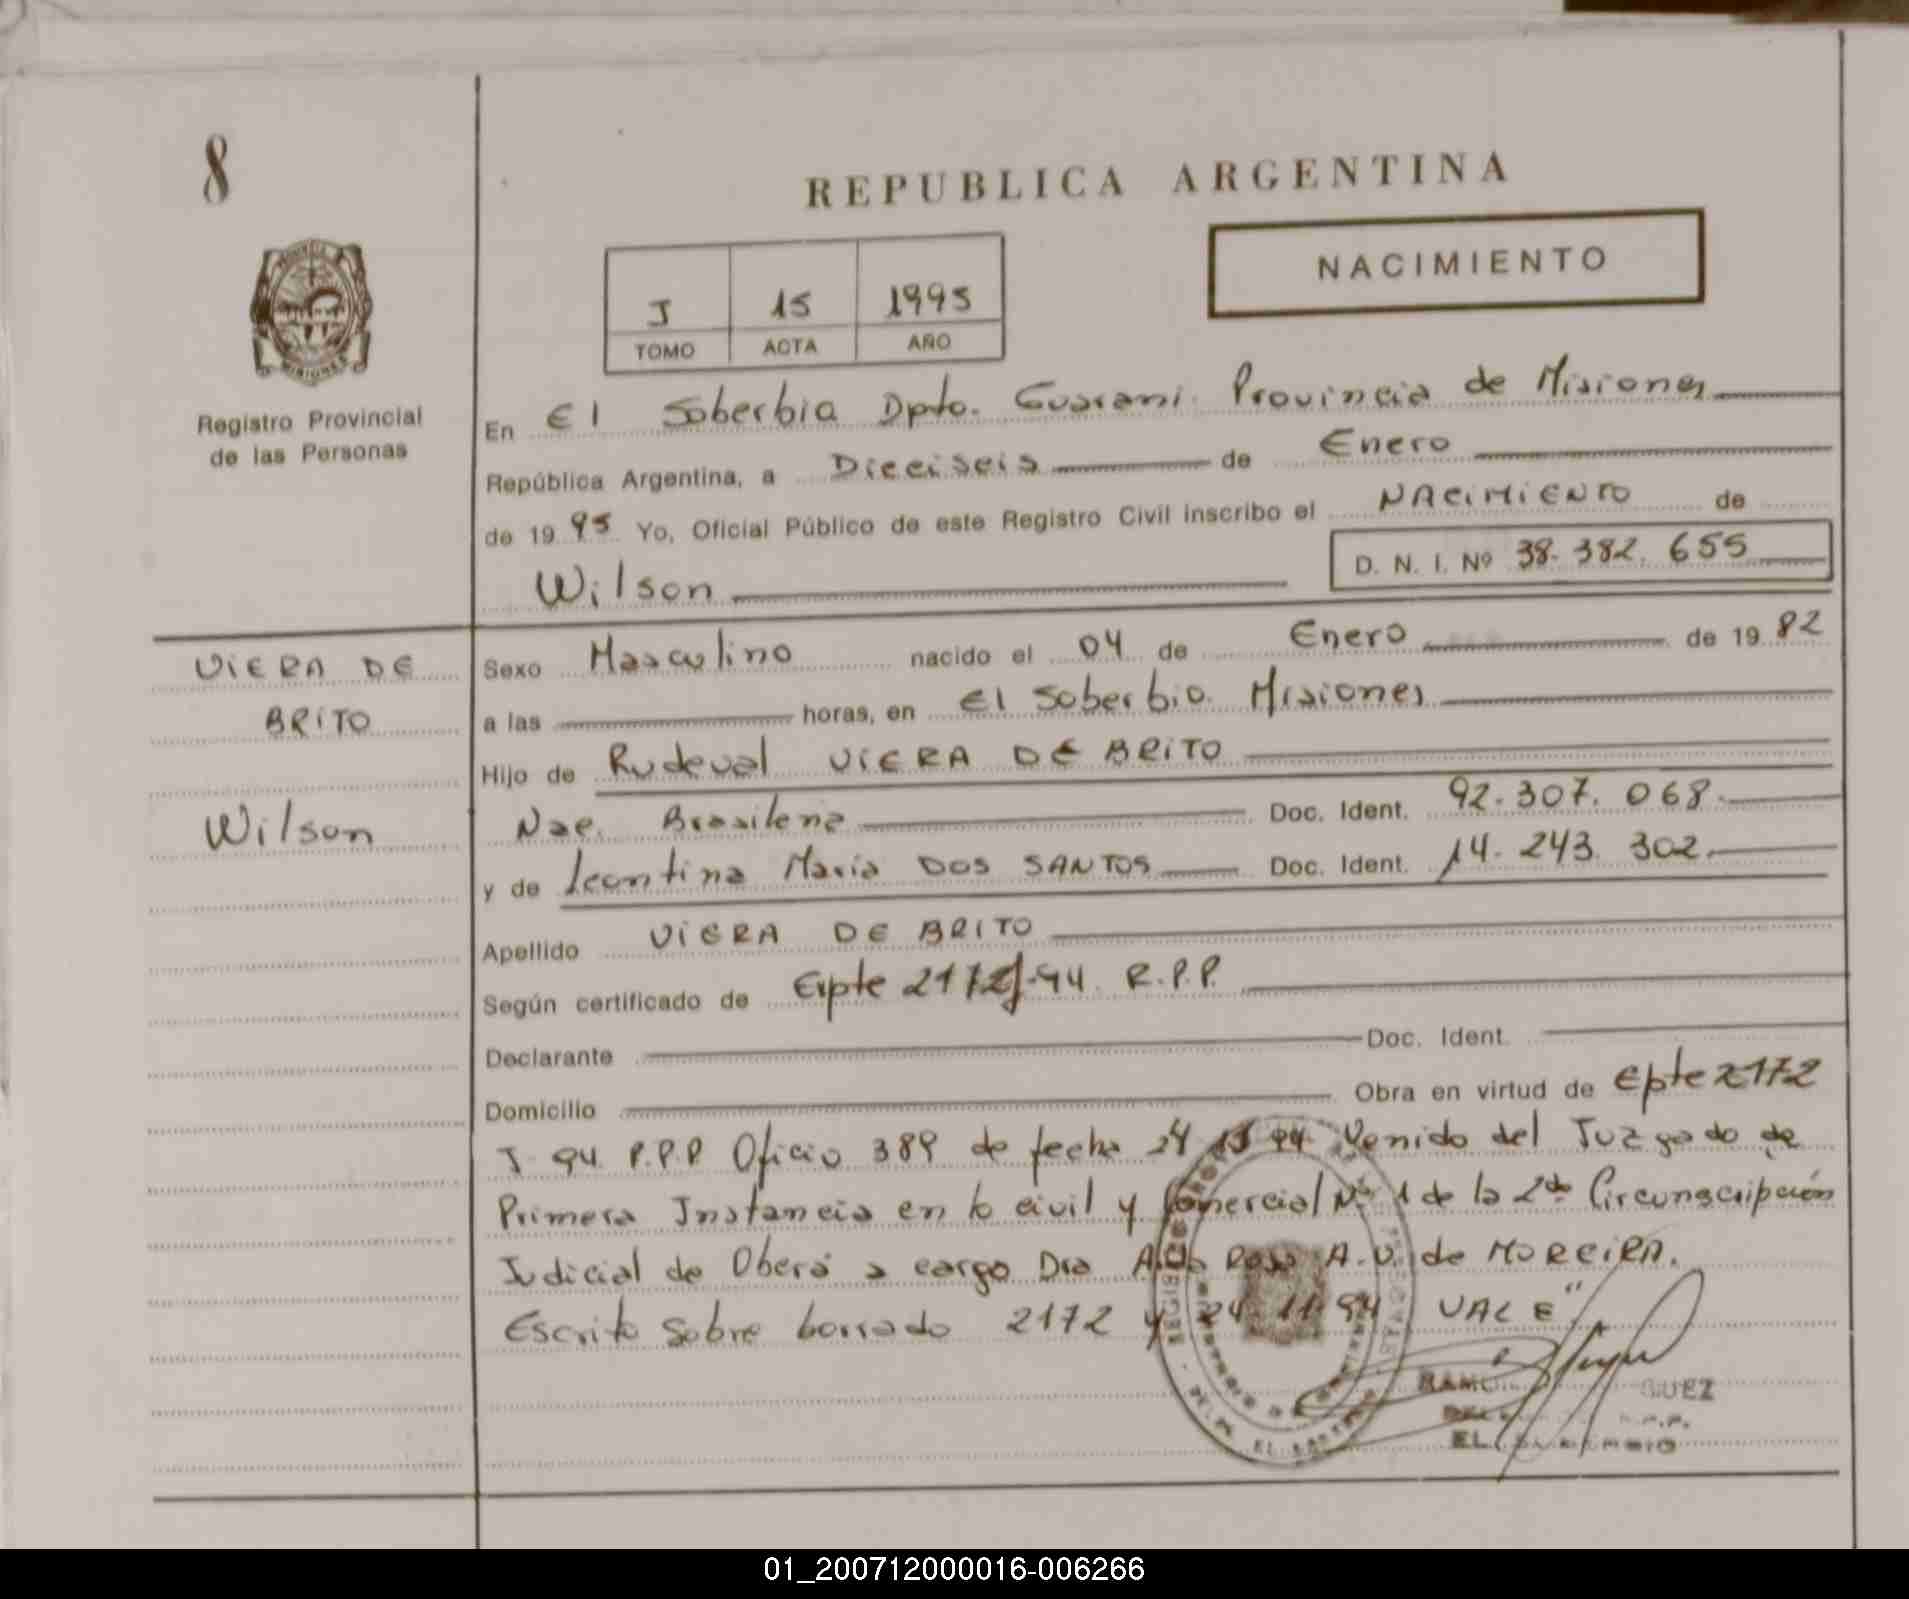 8
REPUBLICA ARGENTINA
NACIMIENTO
J 15 1995
TOMO ACTA AÑO
PROVINCIA
MISIONES
Registro Provincial
de las Personas
En El Soberbia Dpto. Guarani. Provincia de Misiones
República Argentina, a Dieciseis de Enero
de 1995 Yo, Oficial Público de este Registro Civil inscribo el NACIMIENTO de
D. N. I. Nº 38.382.655
Wilson
VIERA DE
BRITO
Wilson
Sexo Masculino nacido el 04 de Enero de 1982
a las horas, en El Soberbio. Misiones
Hijo de Rudeval VIERA DE BRITO
Nac. Brasilena Doc. Ident. 92.307.068.
y de Leontina Maria DOS SANTOS Doc. Ident. 14.243.302.
Apellido VIERA DE BRITO
Según certificado de Expte 2172J-94. R.P.P.
Declarante Doc. Ident.
Domicilio Obra en virtud de Epte 2172
J 94 P.P.P Oficio 389 de fecha 24 11 94 Venido del Juzgado de
Primera Instancia en lo civil y Comercial Nº 1 de la 2da Circunscripción
Judicial de Oberá a cargo Dra A.V. de MOREIRA.
Escrito sobre borrado 2172 y 24.11.94 VALE"
GUEZ
EL
01_200712000016-006266